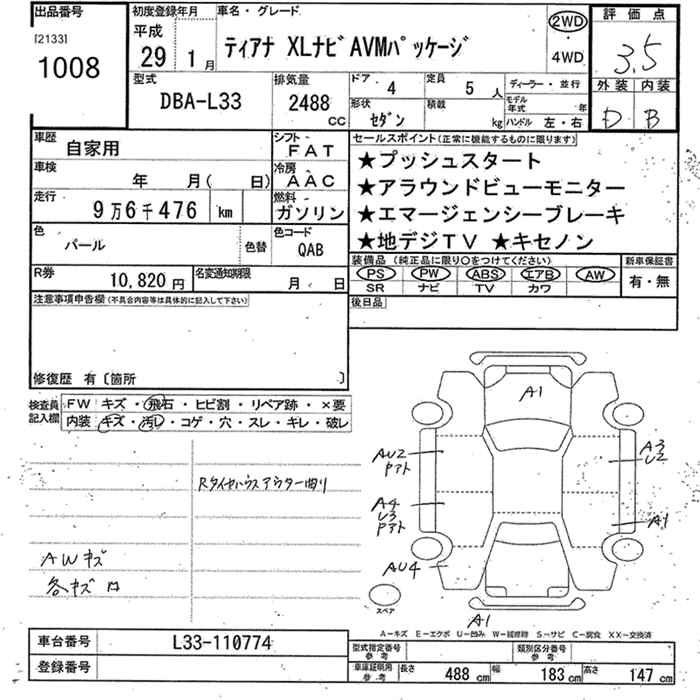 出品番号
[2133]
1008
初度登録年月
平成
29 1月
車名・グレード
ティアナ XLナビAVMパッケージ
2WD
4WD
評価点
3.5
外装 内装
D B
型式
DBA-L33
排気量
2488 cc
ドア 4
定員 5 人
ディーラー・並行
形状 セダン
積載 kg
モデル年式 年
ハンドル 左・右
車歴 自家用
シフト FAT
車検 年 月( 日)
冷房 AAC
走行 9万6千476 km
燃料 ガソリン
色 パール
色替
色コード QAB
R券 10,820円
名変通知期限 月 日
セールスポイント(正常に機能するものに限ります)
★プッシュスタート
★アラウンドビューモニター
★エマージェンシーブレーキ
★地デジTV ★キセノン
装備品(純正品に限り○をつけてください)
PS PW ABS エアB AW
SR ナビ TV カワ
新車保証書
有・無
後日品
注意事項申告欄(不具合内容等は具体的に記入して下さい)
修復歴 有〔箇所 〕
検査員記入欄
FW キズ・飛石・ヒビ割・リペア跡・×要
内装 キズ・汚レ・コゲ・穴・スレ・キレ・破レ
Rタイヤハウスアウター曲り
AWキズ
各キズ凹
A1
AU2
Pアト
A3
U2
A4
U3
Pアト
A1
AU4
スペア
A1
A-キズ E-エクボ U-凹み W-補修跡 S-サビ C-腐食 XX-交換済
車台番号 L33-110774
登録番号
型式指定番号参考
類別区分番号参考
車庫証明用参考
長さ 488 cm
幅 183 cm
高さ 147 cm